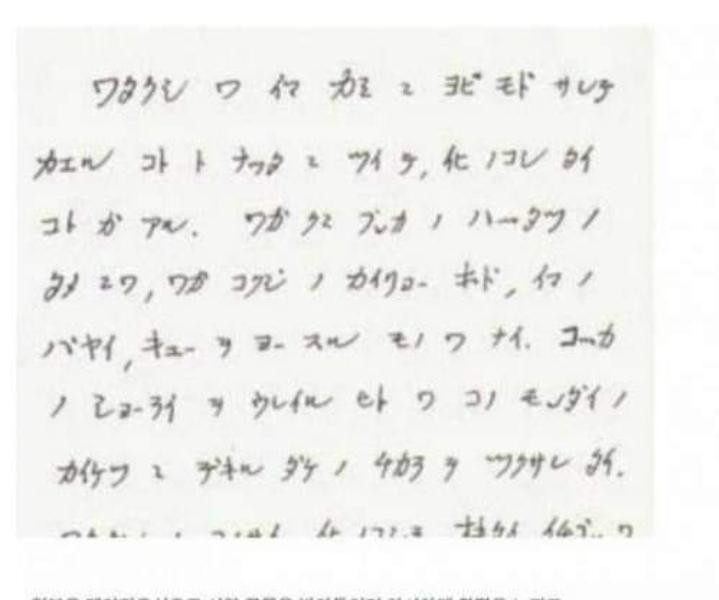 ワタクシ ワ イマ カミ ニ ヨビ モド サレテ
カエル コト ト ナッタ ニ ツイ テ, イヒ ノコシ タイ
コト ガ アル. ワガ クニ ブンカ ノ ハッタツ ノ
タメ ニワ, ワガ コクジ ノ カイリョー ホド, イマ ノ
バヤイ, キュー ヲ ヨー スル モノ ワ ナイ. コッカ
ノ ショーライ ヲ ウレイル ヒト ワ コノ モンダイ ノ
カイケツ ニ デキル ダケ ノ チカラ ヲ ツクサレ タイ.